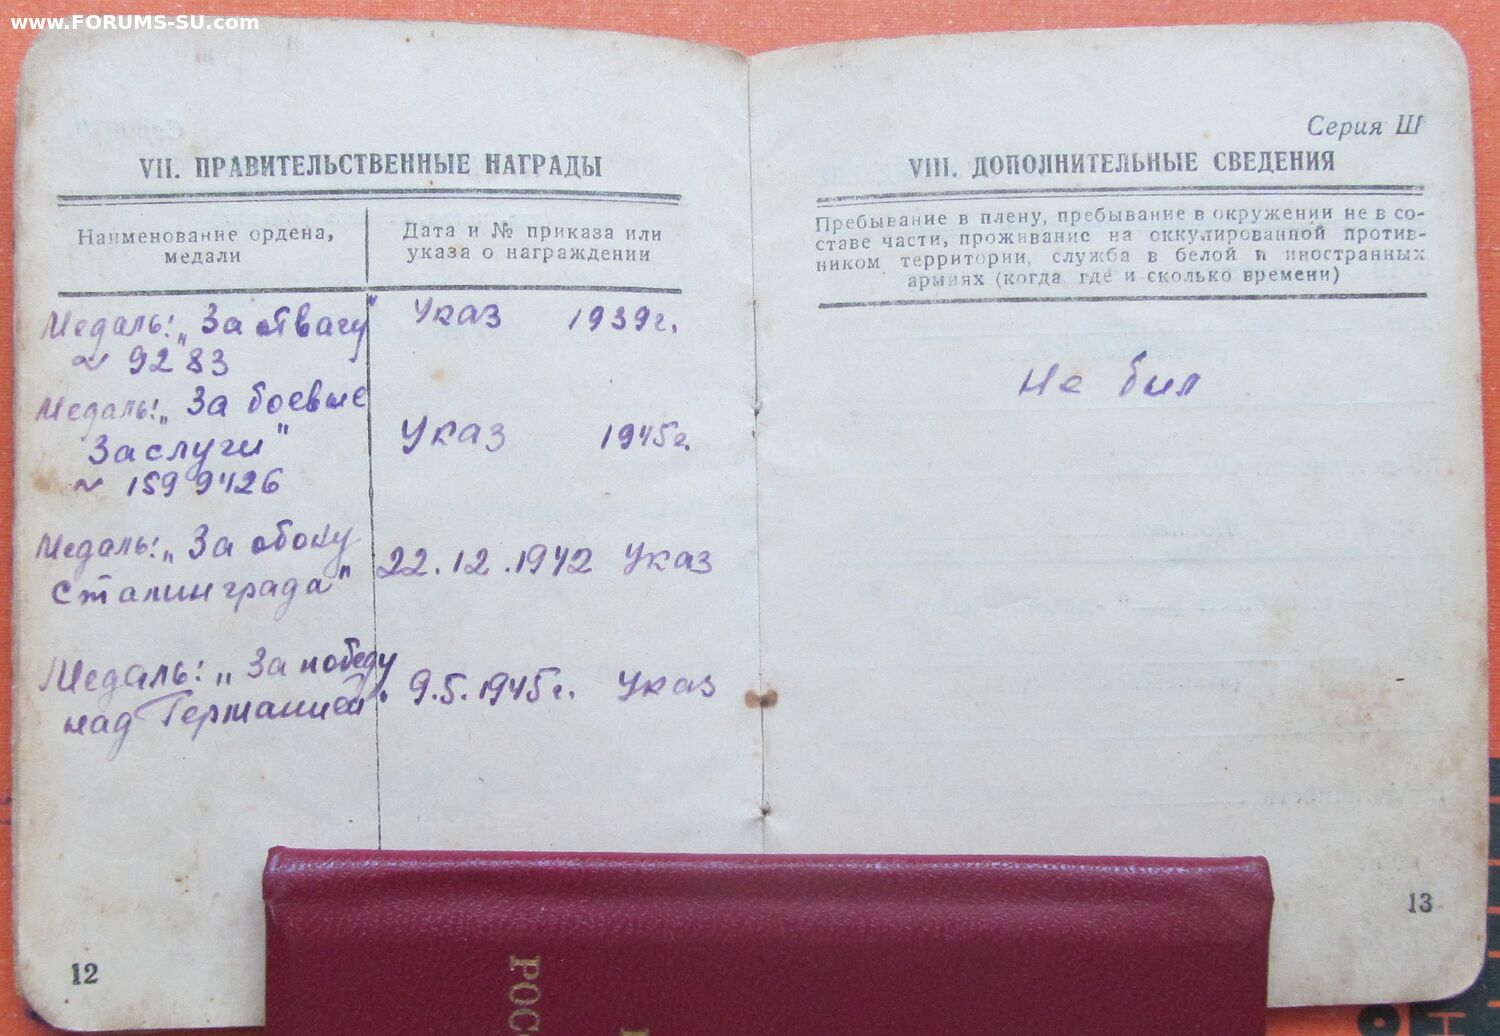 www.FORUMS-SU.com
VII. ПРАВИТЕЛЬСТВЕННЫЕ НАГРАДЫ
Наименование ордена,
медали
Дата и № приказа или
указа о награждении
Медаль: „За отвагу"
~ 9283
Указ 1939г.
Медаль: „За боевые
Заслуги"
~ 1599426
Указ 1945г.
Медаль: „За обону
Сталинграда"
22.12.1942 Указ
Медаль: „За победу
над Германией"
9.5.1945г. Указ
12
Серия Ш
VIII. ДОПОЛНИТЕЛЬНЫЕ СВЕДЕНИЯ
Пребывание в плену, пребывание в окружении не в со-
ставе части, проживание на оккупированной против-
ником территории, служба в белой и иностранных
армиях (когда где и сколько времени)
Не бил
13
РОС